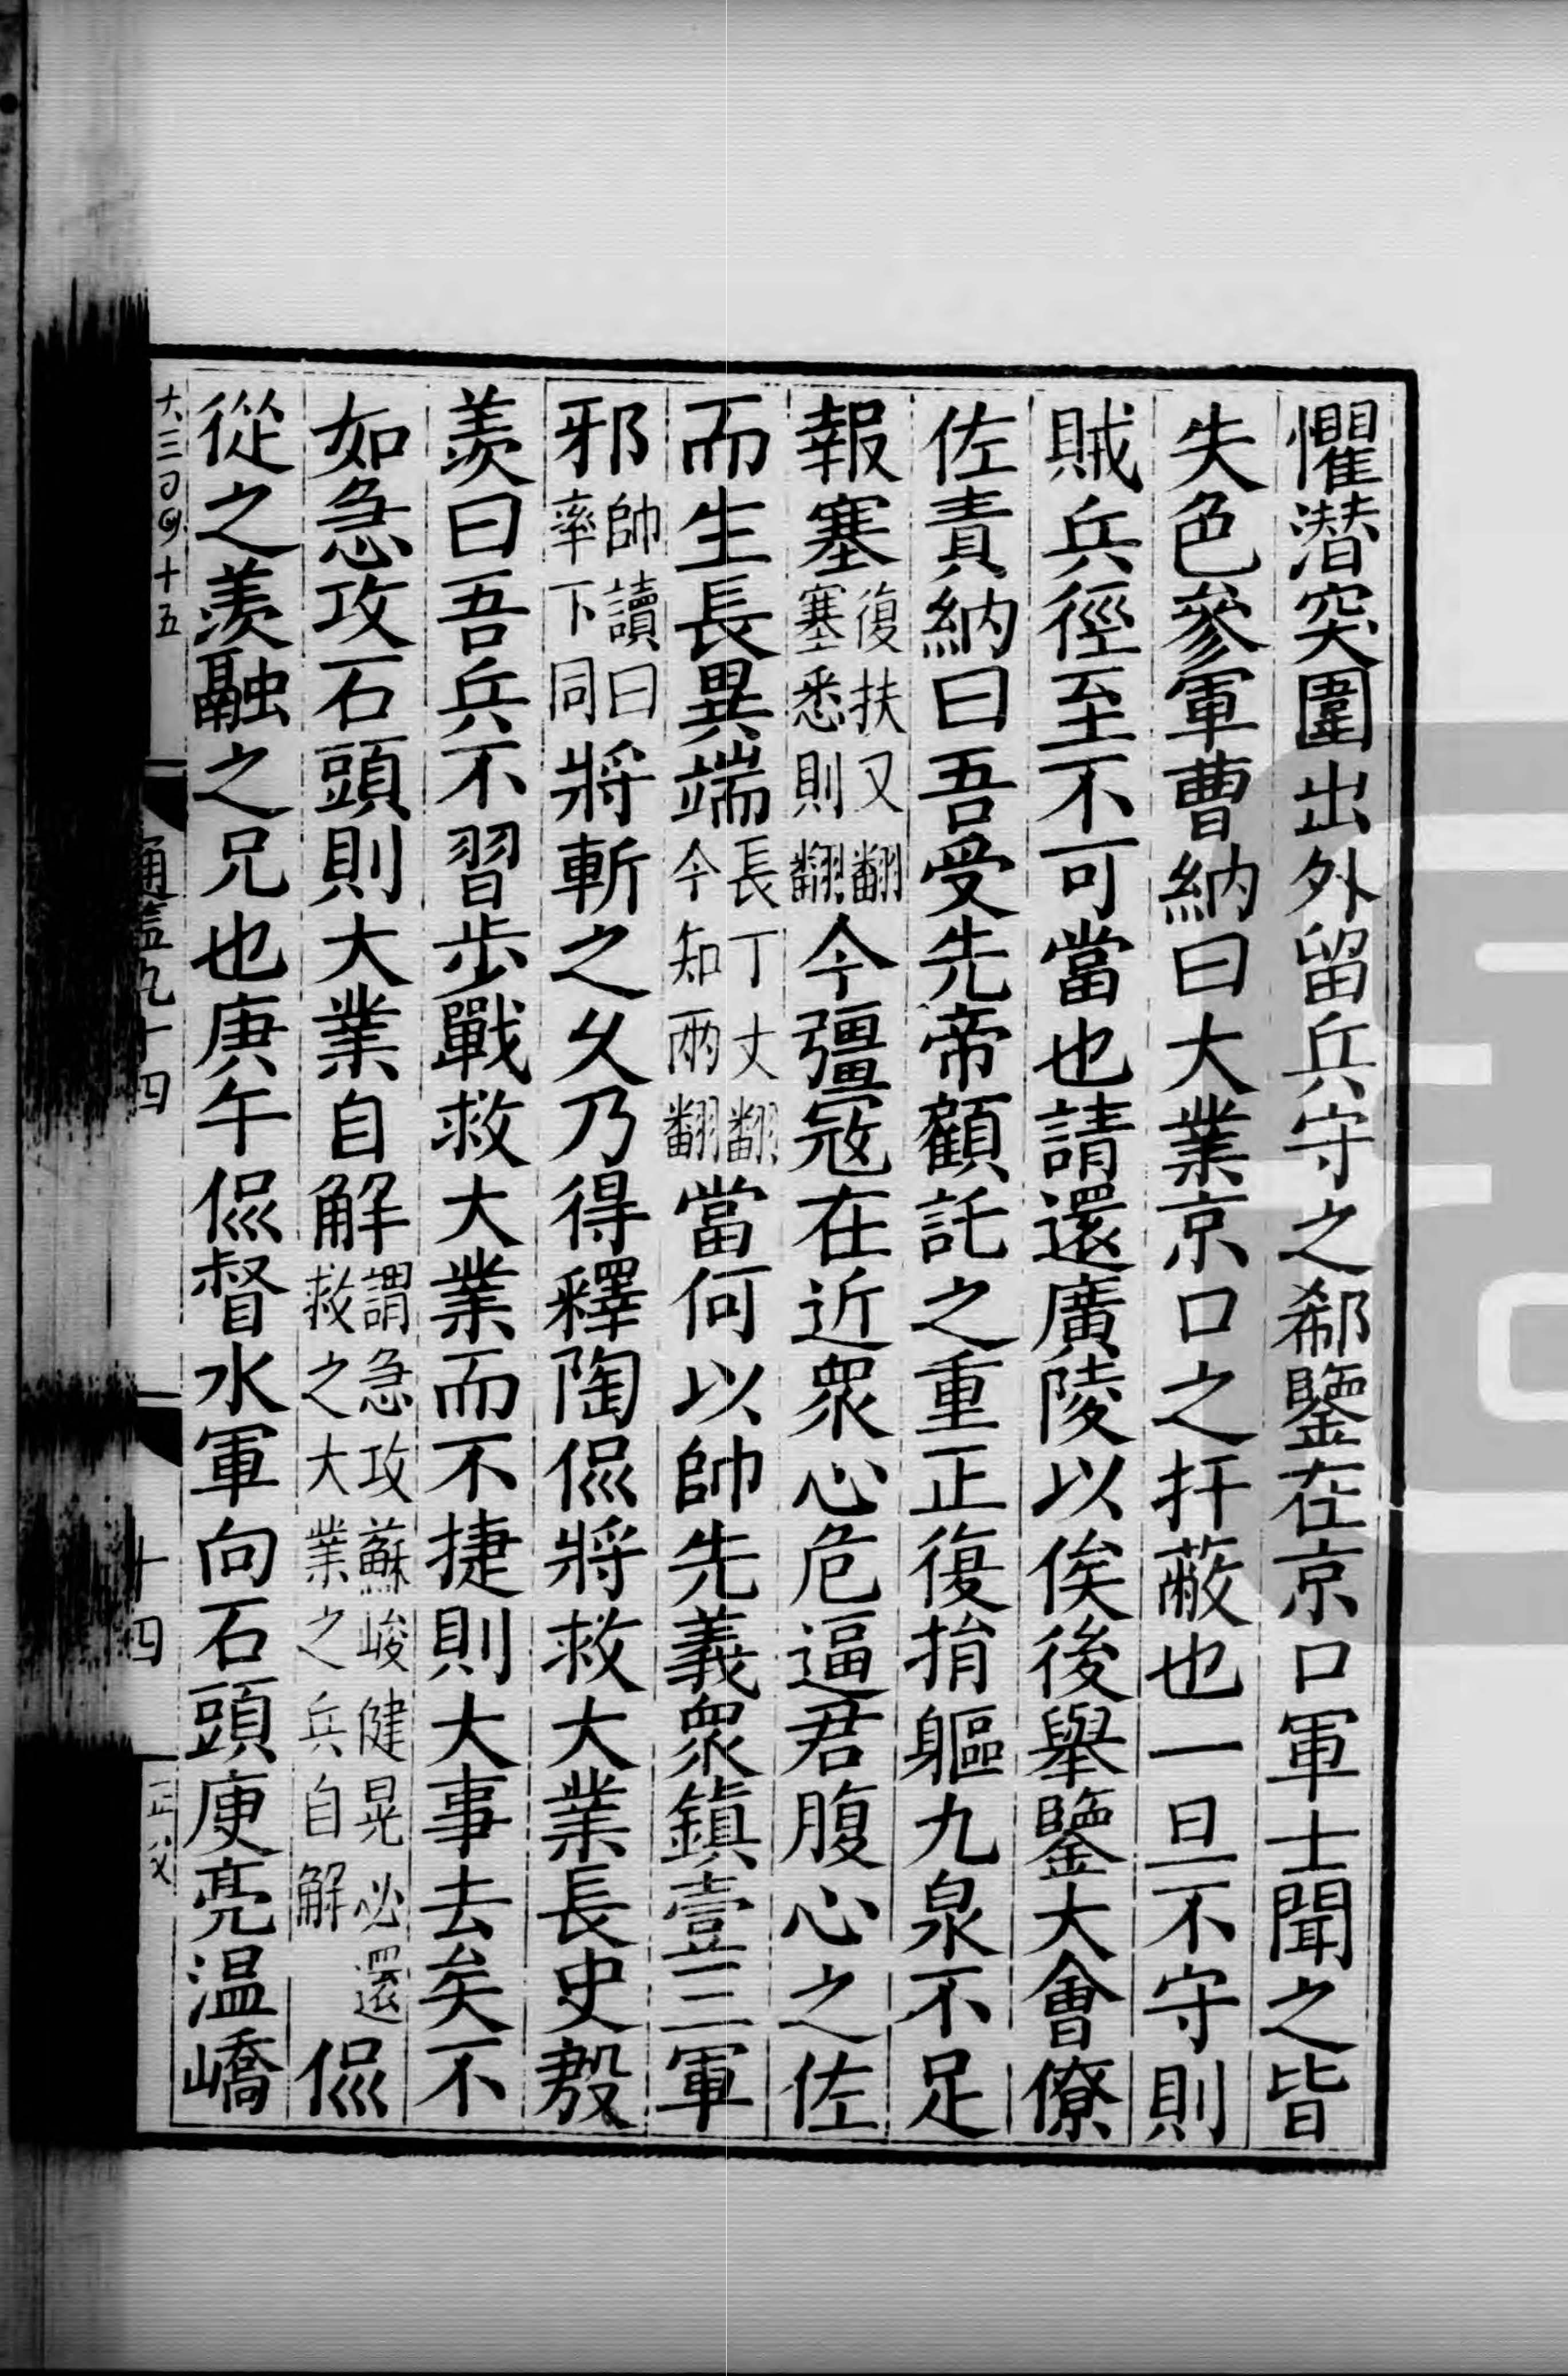 懼潛突圍出外留兵守之郗鑒在京口軍士聞之皆
失色參軍曹納曰大業京口之扞蔽也一旦不守則
賊兵徑至不可當也請還廣陵以俟後舉鑒大會僚
佐責納曰吾受先帝顧託之重正復捐軀九泉不足
報塞復扶又翻塞悉則翻今彊寇在近衆心危逼君腹心之佐
而生長異端長丁丈翻今知兩翻當何以帥先義衆鎮壹三軍
邪帥讀曰率下同將斬之久乃得釋陶侃將救大業長史殷
羨曰吾兵不習步戰救大業而不捷則大事去矣不
如急攻石頭則大業自解謂急攻蘇峻健晃必還救之大業之兵自解侃
從之羨融之兄也庚午侃督水軍向石頭庾亮溫嶠
通鑑九十四
十四